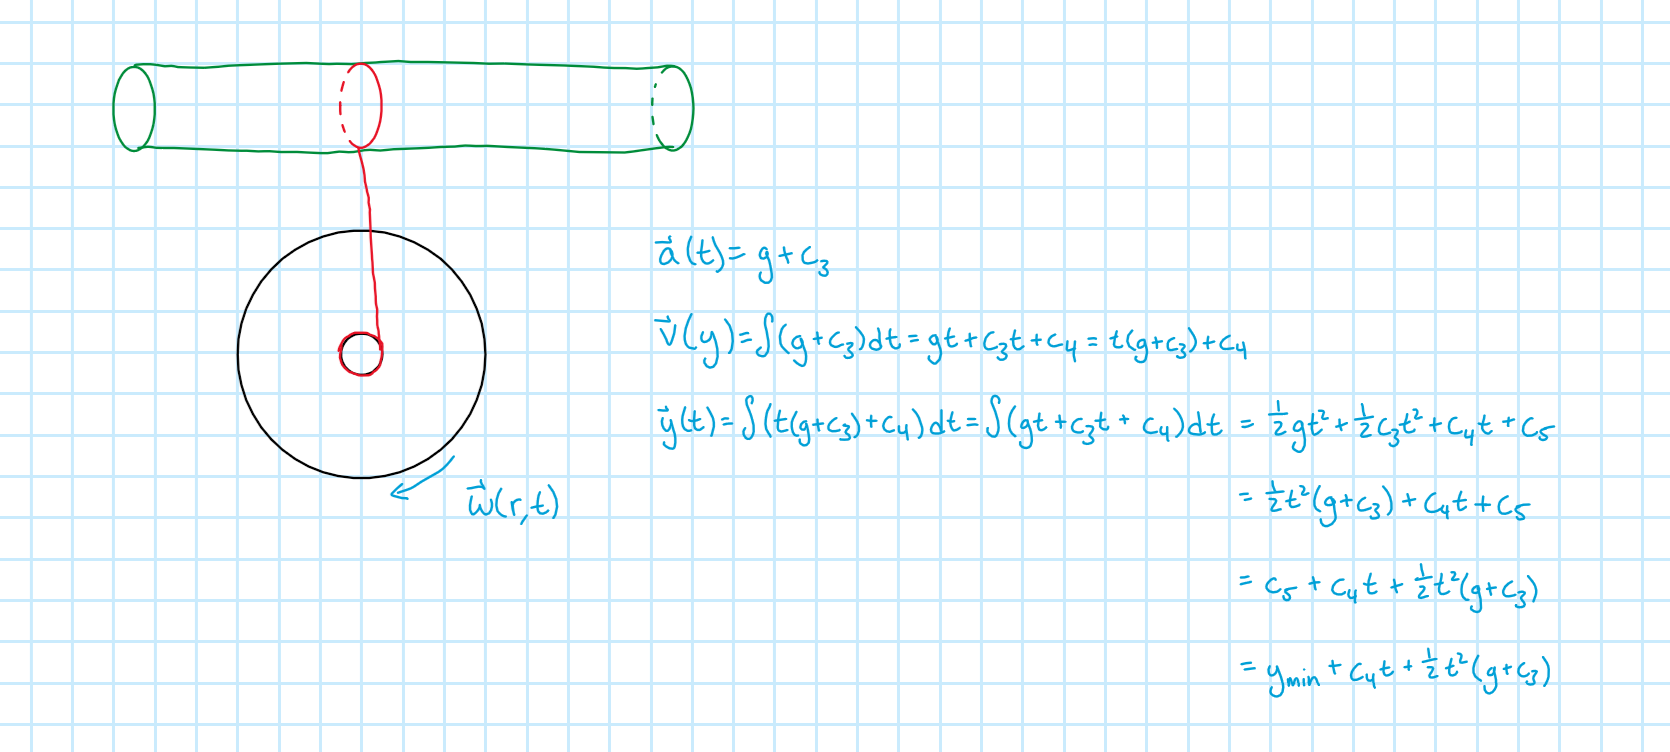 a⃗(t)= g+c₃
v⃗(y)=∫(g+c₃)dt = gt+c₃t+c₄ = t(g+c₃)+c₄
y⃗(t)=∫(t(g+c₃)+c₄)dt=∫(gt+c₃t+c₄)dt = ½gt²+½c₃t²+c₄t+c₅
= ½t²(g+c₃)+c₄t+c₅
ω⃗(r,t)
= c₅+c₄t+½t²(g+c₃)
= yₘᵢₙ+c₄t+½t²(g+c₃)